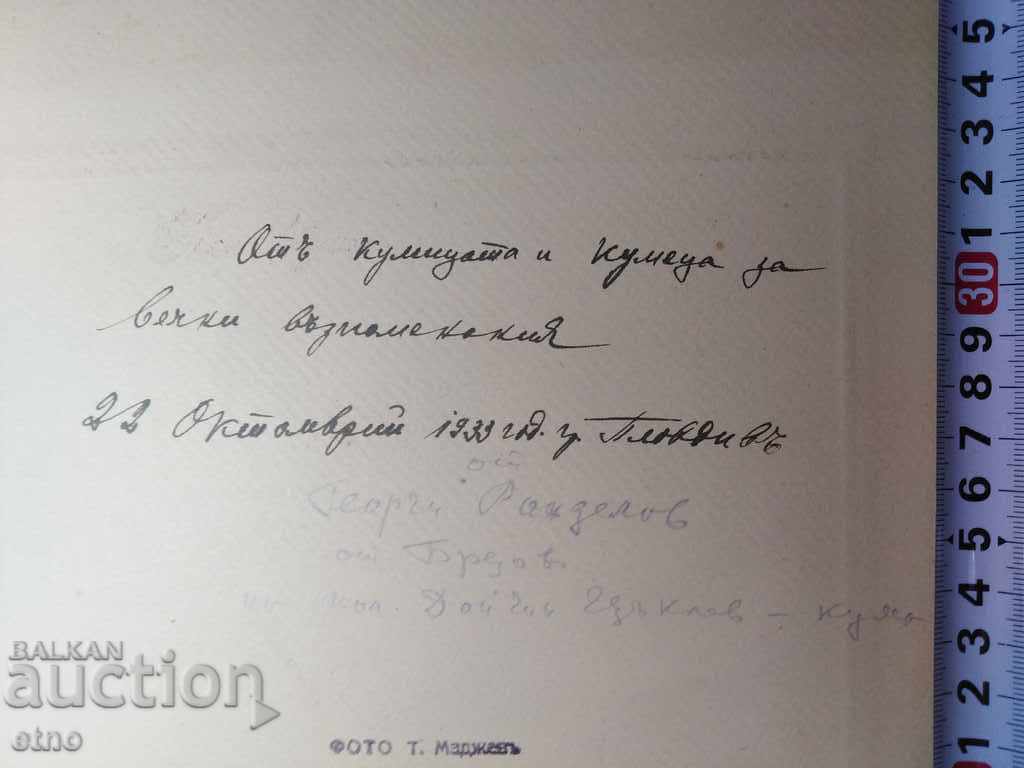 Отъ кумицата и кумеца за
вечни възпоменания
22 Октомврий 1933 год. гр. Пловдивъ
от
Георги Ранделов
от Брезов
Дойчин - кума
BALKAN
auction
etno
ФОТО Т. Маджевъ
5
4
3
2
1
30
9
8
7
6
5
4
3
2
1